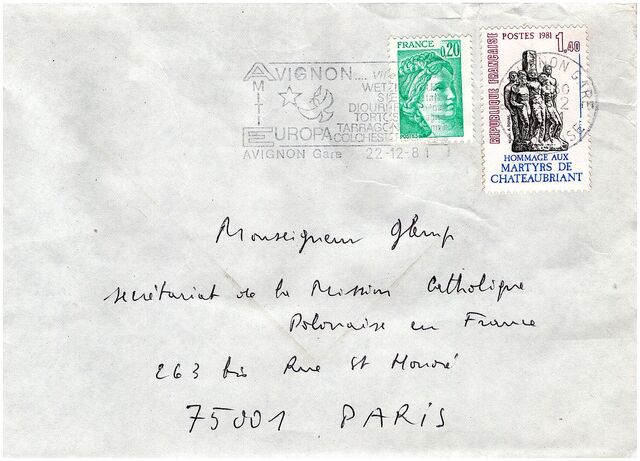 AVIGNON....
AMITIE
EUROPA
TARRAGO
COLCHEST
AVIGNON Gare 22-12-81
FRANCE
0,20
POSTES 1981 1,40
REPUBLIQUE FRANÇAISE
AVIGNON GARE
HOMMAGE AUX
MARTYRS DE
CHATEAUBRIANT
Monseigneur Glemp
secrétariat de la Mission Catholique
Polonaise en France
263 bis Rue St Honoré
75001 PARIS